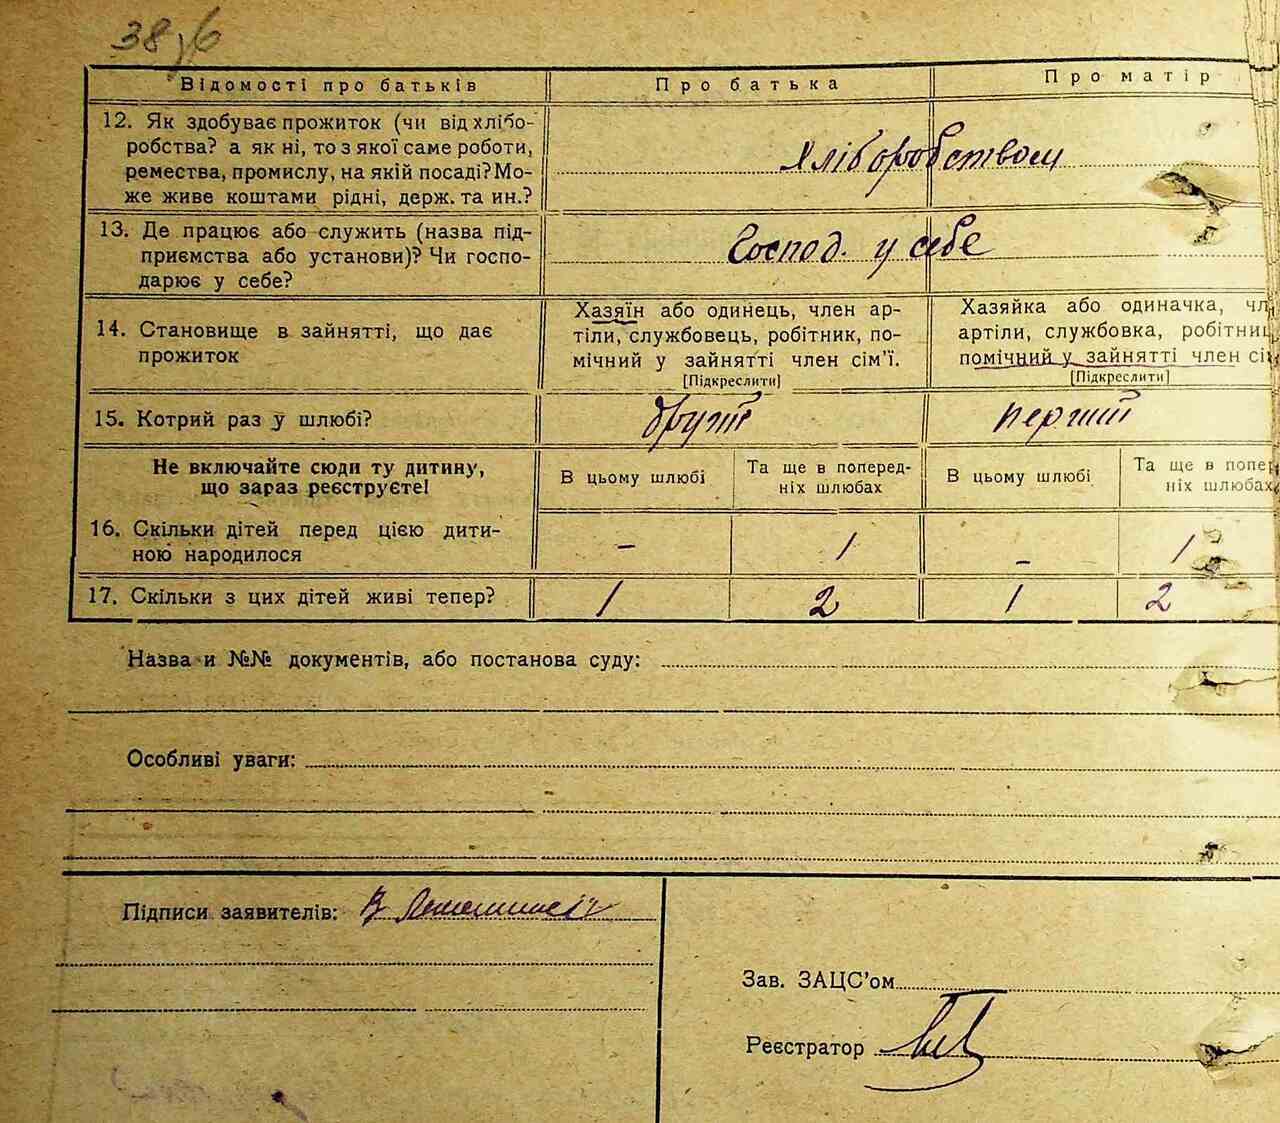 38
Відомості про батьків Про батька Про матір
12. Як здобуває прожиток (чи від хлібо-
робства? а як ні, то з якої саме роботи,
ремества, промислу, на якій посаді? Мо-
же живе коштами рідні, держ. та ин.?
Хліборобством
13. Де працює або служить (назва під-
приємства або установи)? Чи госпо-
дарює у себе?
Господ. у себе
14. Становище в зайнятті, що дає
прожиток
Хазяїн або одинець, член ар-
тіли, службовець, робітник, по-
мічний у зайнятті член сім'ї.
[Підкреслити]
Хазяйка або одиначка, чл
артіли, службовка, робітниц
помічний у зайнятті член сі
[Підкреслити]
15. Котрий раз у шлюбі? другий перший
Не включайте сюди ту дитину,
що зараз реєструєте!
В цьому шлюбі
Та ще в поперед-
ніх шлюбах
В цьому шлюбі
Та ще в попер
ніх шлюбах
16. Скільки дітей перед цією дити-
ною народилося
– 1 – 1
17. Скільки з цих дітей живі тепер? 1 2 1 2
Назва и №№ документів, або постанова суду:
Особливі уваги:
Підписи заявителів: В
Зав. ЗАЦС'ом
Реєстратор